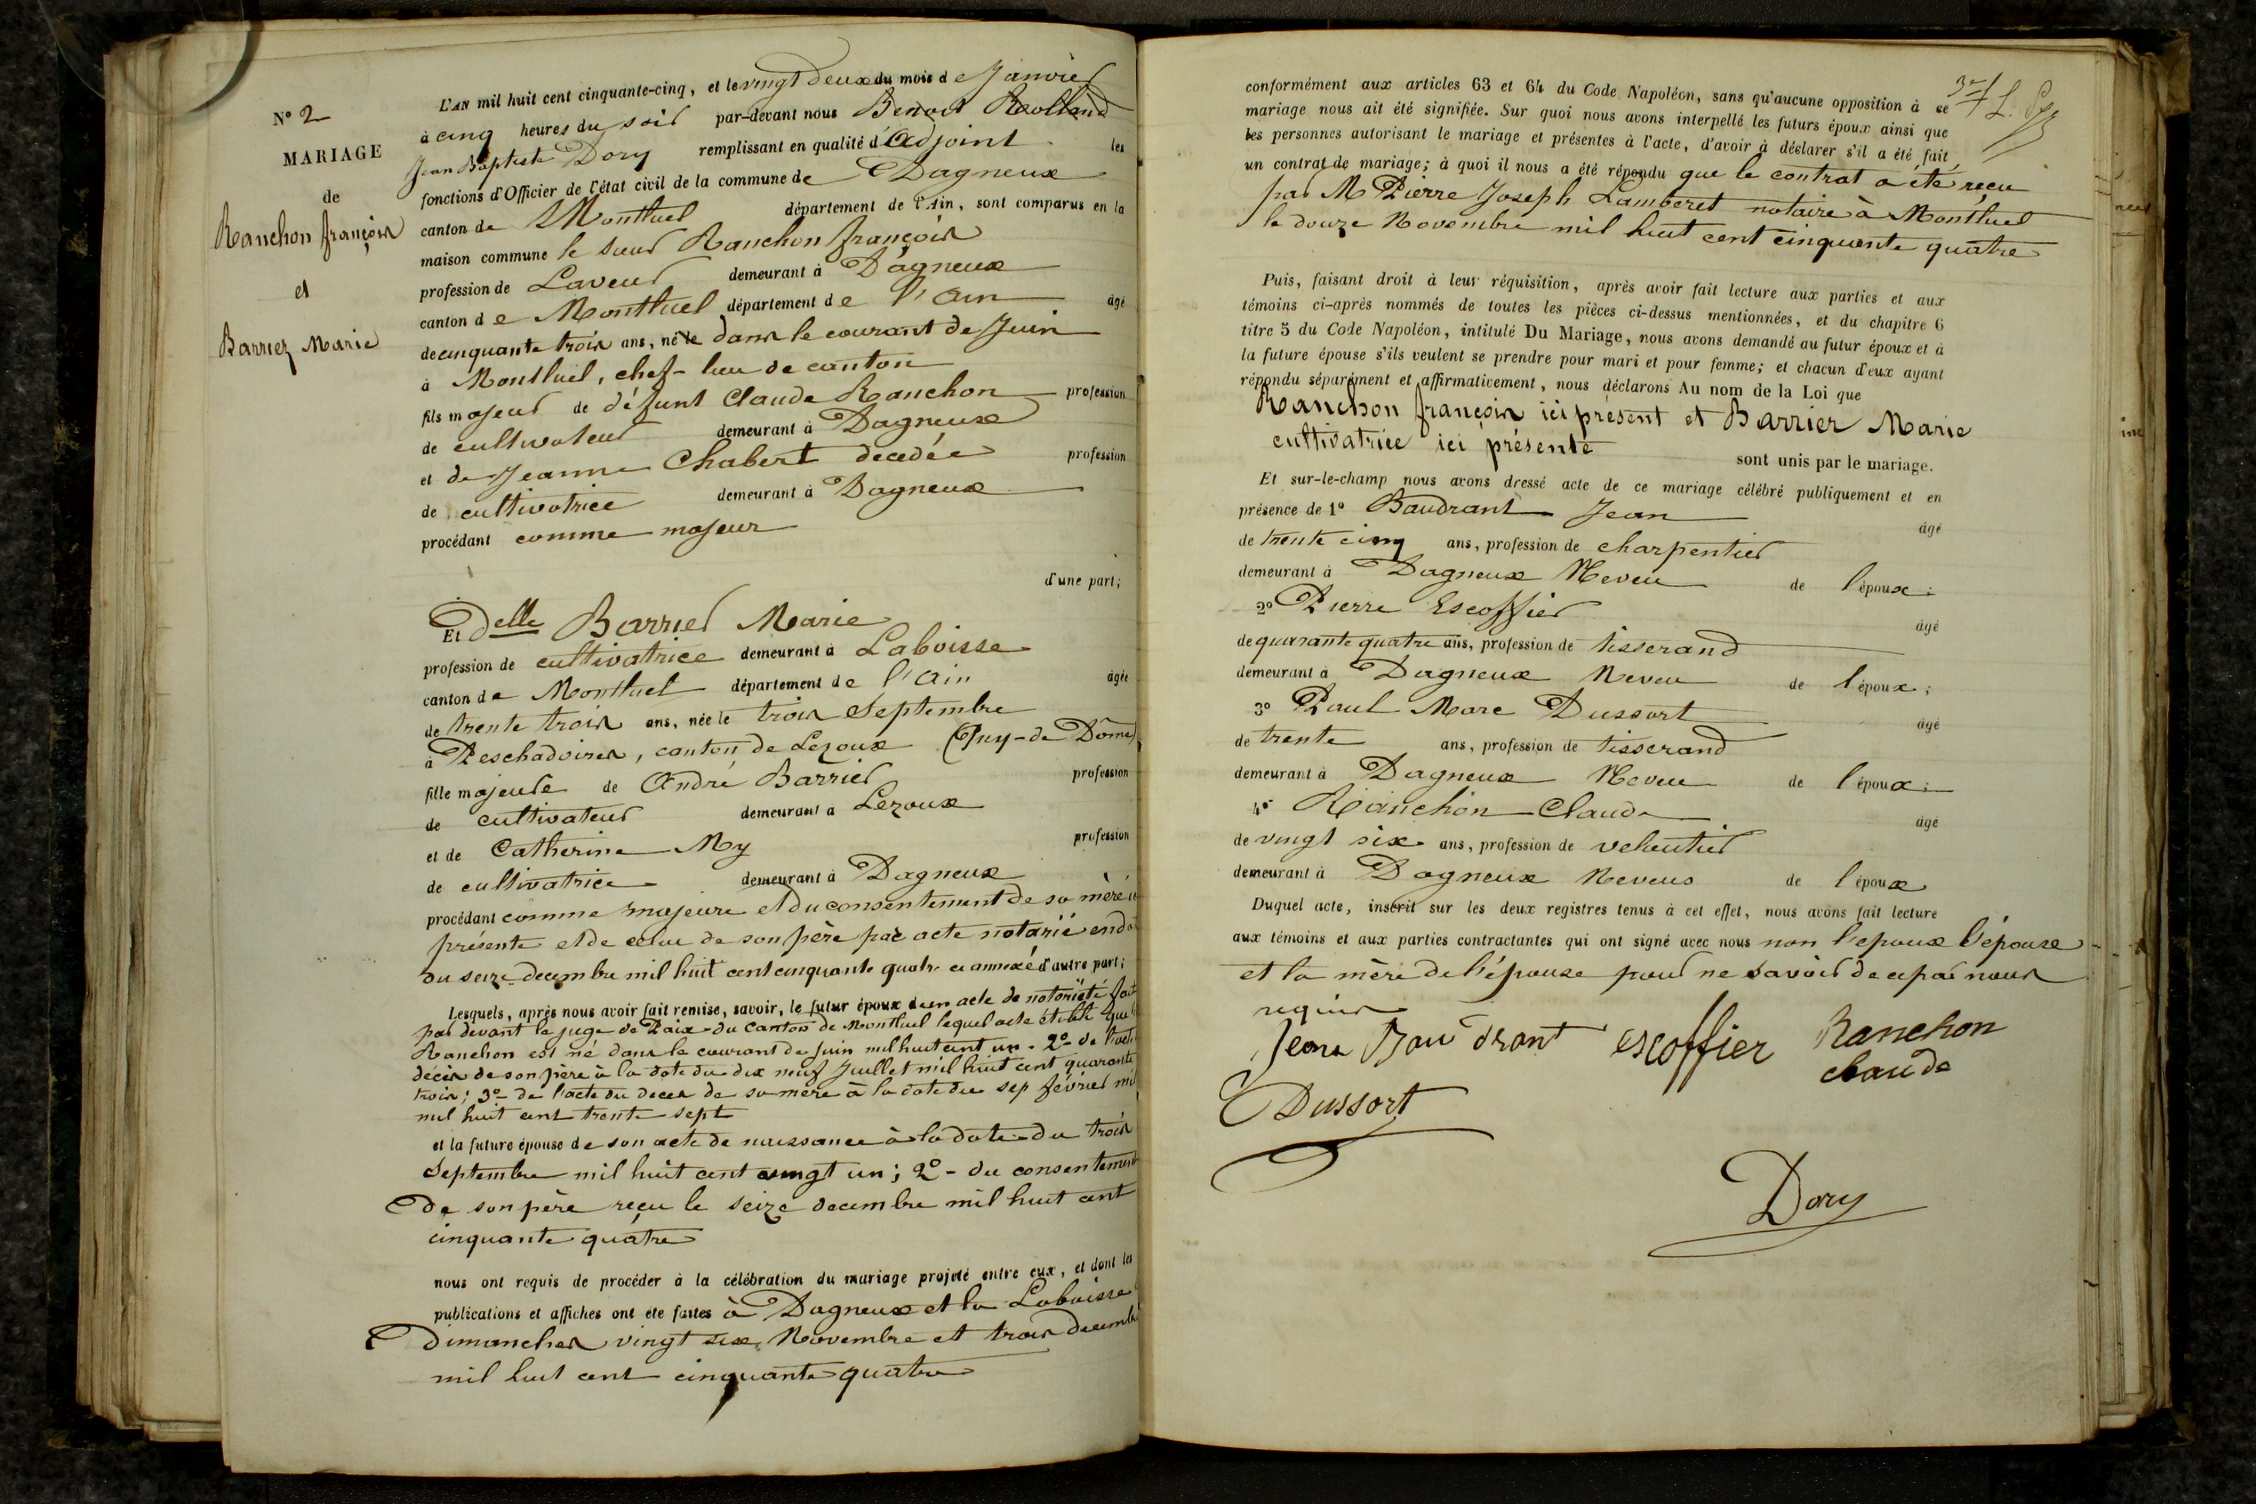 N° 2
MARIAGE
de
Ranchon françois
et
Barrier Marie
L'AN mil huit cent cinquante-cinq, et le vingt deux du mois de Janvier
à cinq heures du soir par-devant nous Benoit Rolland
Jean Baptiste Dory remplissant en qualité d'adjoint les
fonctions d'Officier de l'état civil de la commune de Dagneux
canton de Montluel département de l'Ain, sont comparus en la
maison commune le sieur Ranchon françois
profession de Laveur demeurant à Dagneux
canton de Montluel département de l'ain âgé
de cinquante trois ans, né le dans le courant de Juin
à Montluel, chef-lieu de canton
fils majeur de défunt Claude Ranchon profession
de cultivateur demeurant à Dagneux
et de Jeanne Chabert decedée profession
de cultivatrice demeurant à Dagneux
procédant comme majeur
d'une part;
Et Delle Barrier Marie
profession de cultivatrice demeurant à Laboisse
canton de Montluel département de l'ain âgée
de trente trois ans, née le trois Septembre
à Peschadoires, canton de Lezoux (Puy-de Dôme)
fille majeure de André Barrier profession
de cultivateur demeurant à Lezoux
et de Catherine My profession
de cultivatrice demeurant à Dagneux
procédant comme majeure et du consentement de sa mère ici
présente et de celui de son père par acte notarié en
du seize decembre mil huit cent cinquante quatre ci annexé d'autre part;
Lesquels, après nous avoir fait remise, savoir, le futur époux d'un acte de notoriété fait
par devant le juge de Paix du canton de Montluel lequel acte établit que
Ranchon est né dans le courant de Juin mil huit cent un. 2° de l'acte
décès de son père à la date du dix neuf Juillet mil huit cent quarante
trois; 3° de l'acte du decès de sa mère à la date du sep février mil
mil huit cent trente sept
et la future épouse de son acte de naissance à la date du trois
Septembre mil huit cent vingt un; 2°- du consentement
de son père reçu le seize decembre mil huit cent
cinquante quatre
nous ont requis de procéder à la célébration du mariage projeté entre eux, et dont les
publications et affiches ont été faites à Dagneux et la Laboisse
Dimanches vingt six Novembre et trois decembre
mil huit cent cinquante quatre
conformément aux articles 63 et 64 du Code Napoléon, sans qu'aucune opposition à ce
mariage nous ait été signifiée. Sur quoi nous avons interpellé les futurs époux ainsi que
les personnes autorisant le mariage et présentes à l'acte, d'avoir à déclarer s'il a été fait
un contrat de mariage; à quoi il nous a été répondu que le contrat a été reçu
par M Pierre Joseph Lamberet notaire à Montluel
le douze Novembre mil huit cent cinquante quatre
Puis, faisant droit à leur réquisition, après avoir fait lecture aux parties et aux
témoins ci-après nommés de toutes les pièces ci-dessus mentionnées, et du chapitre 6
titre 5 du Code Napoléon, intitulé Du Mariage, nous avons demandé au futur époux et à
la future épouse s'ils veulent se prendre pour mari et pour femme; et chacun d'eux ayant
répondu séparément et affirmativement, nous déclarons Au nom de la Loi que
Ranchon françois ici présent et Barrier Marie
cultivatrice ici présente
sont unis par le mariage.
Et sur-le-champ nous avons dressé acte de ce mariage célébré publiquement et en
présence de 1° Baudrant Jean âgé
de trente cinq ans, profession de charpentier
demeurant à Dagneux Neveu de l'époux;
2° Pierre Escoffier âgé
de quarante quatre ans, profession de tisserand
demeurant à Dagneux Neveu de l'époux;
3° Paul Marc Dussort âgé
de trente ans, profession de tisserand
demeurant à Dagneux Neveu de l'époux;
4° Ranchon Claude âgé
de vingt six ans, profession de
demeurant à Dagneux Neveus de l'époux
Duquel acte, inscrit sur les deux registres tenus à cet effet, nous avons fait lecture
aux témoins et aux parties contractantes qui ont signé avec nous non l'epoux l'épouse
et la mère de l'épouse pour ne savoir de ce par nous
requis
Jean Baudrant escoffier Ranchon
claude
Dussort
Dory